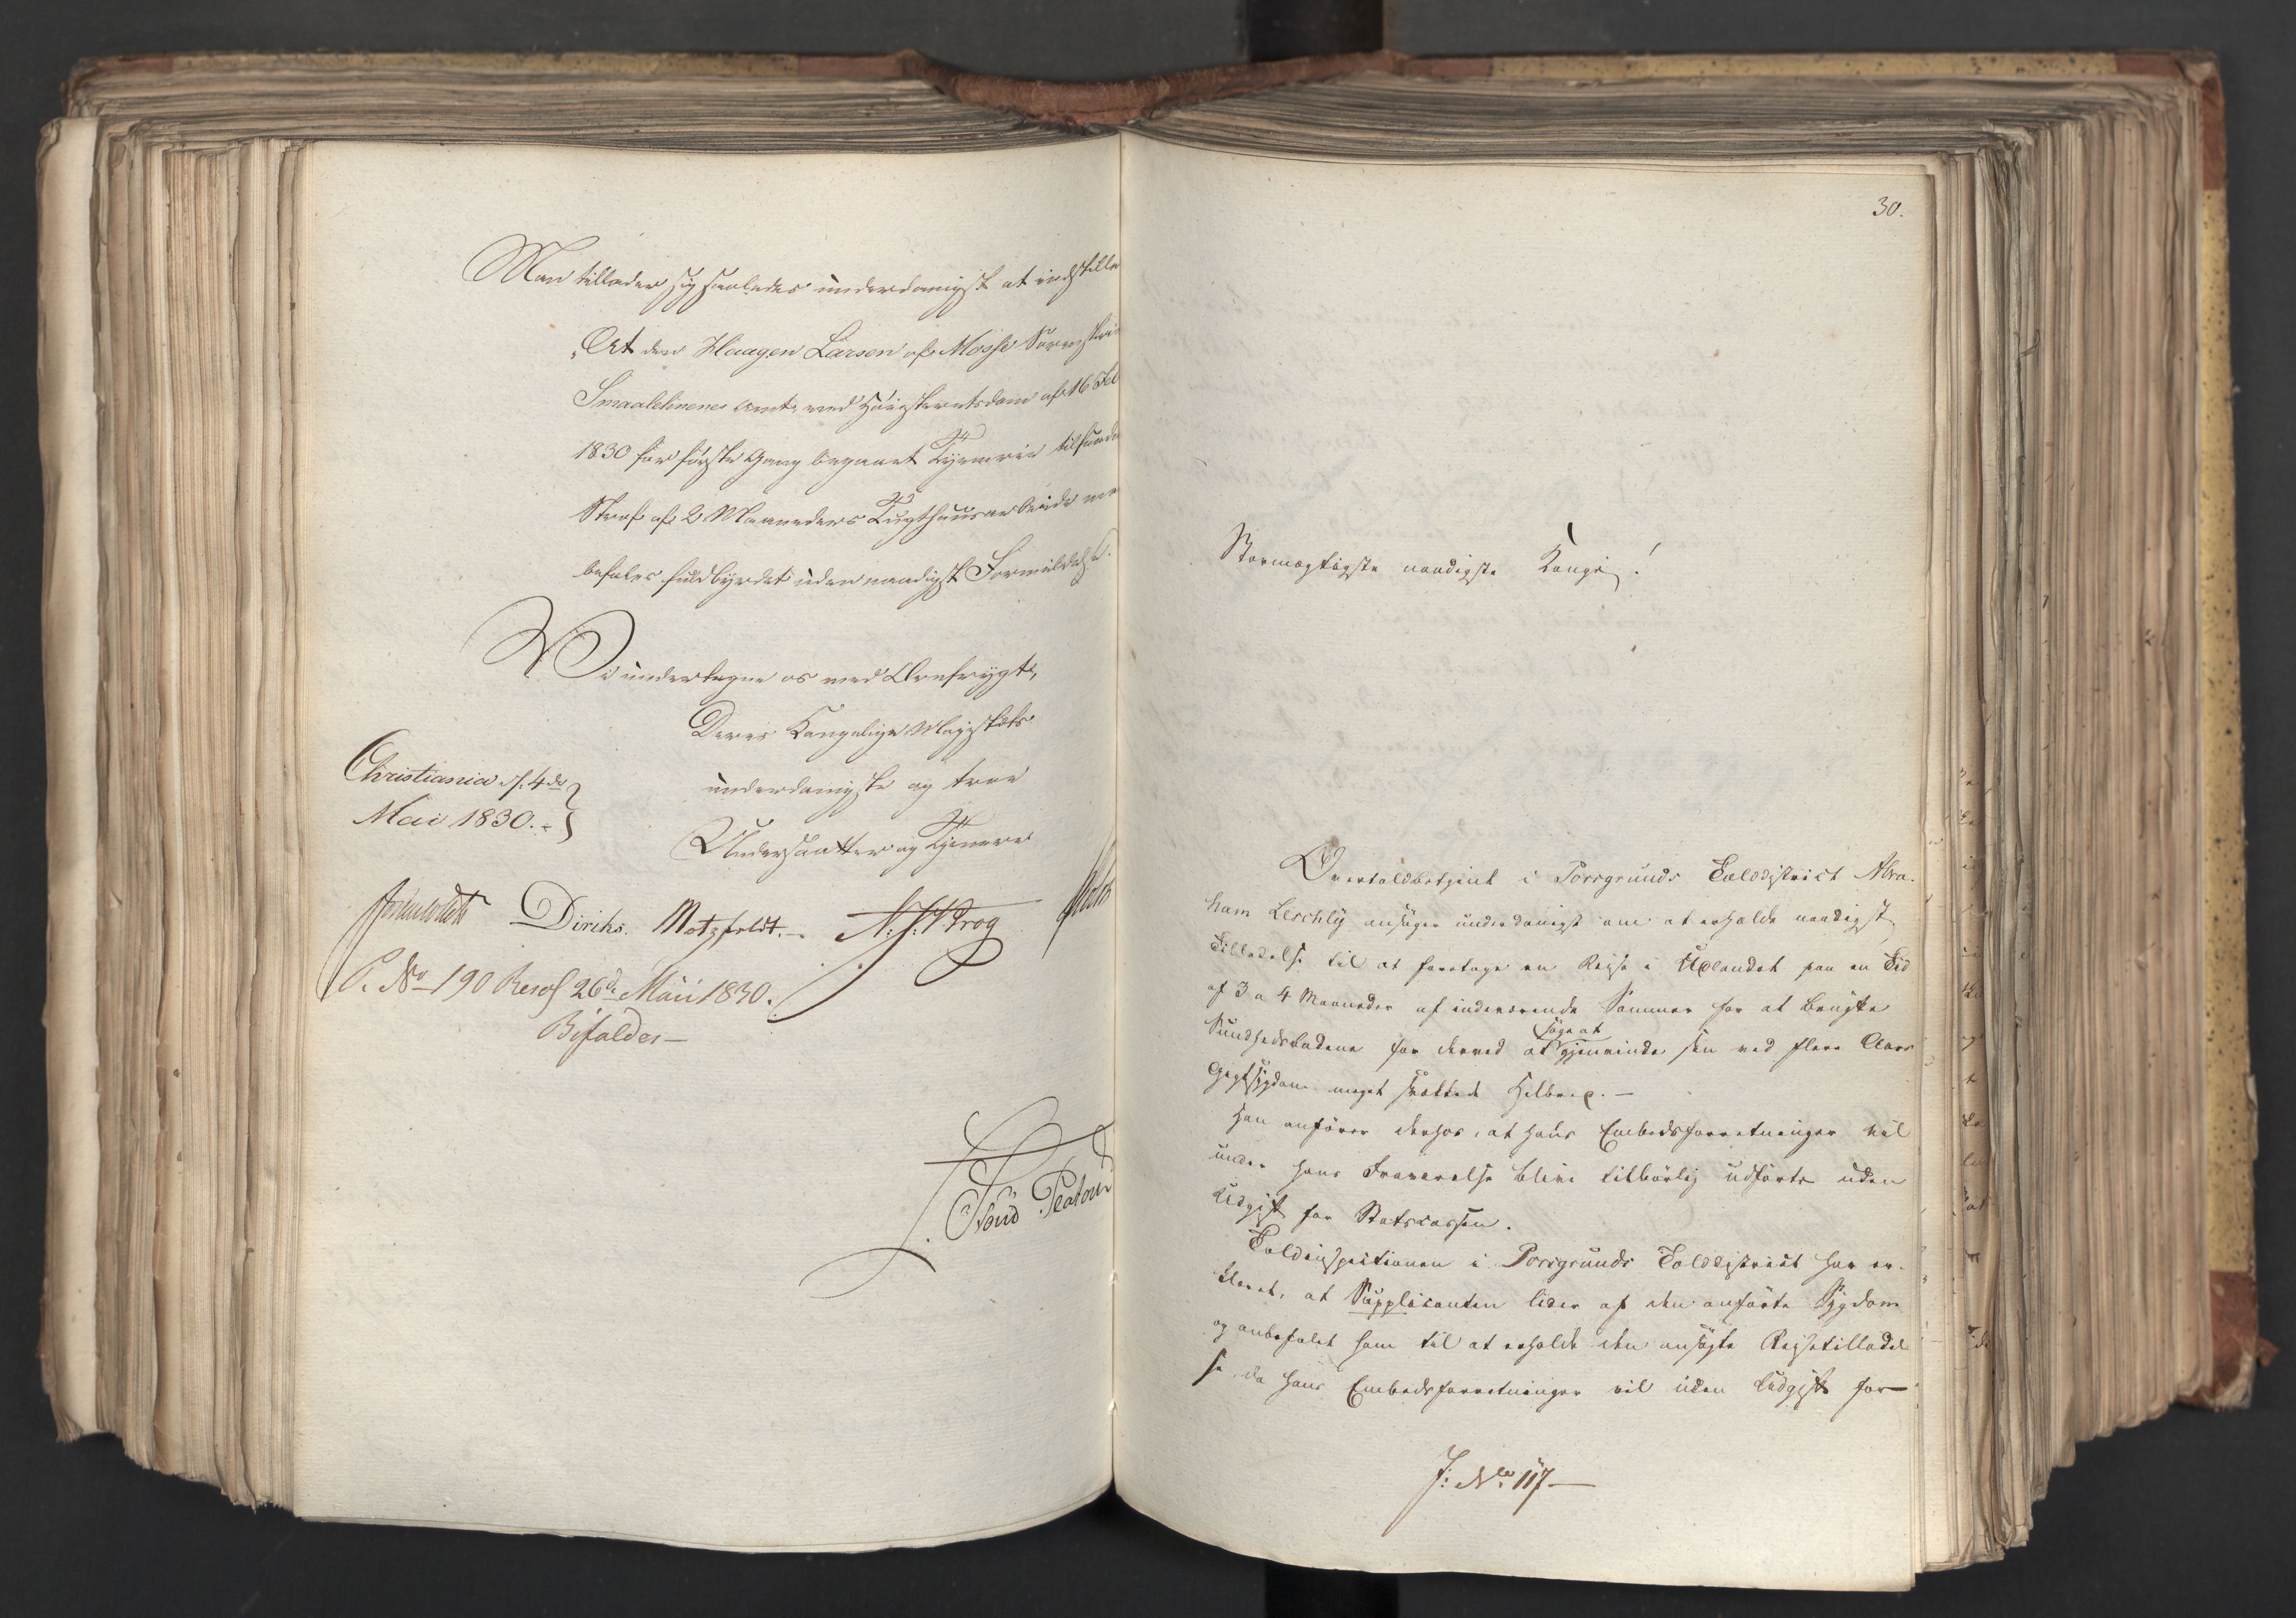 Man tillader sig saaledes underdanigst at indstille
"At den Haagen Larsen af Mosse Sorenskri
Smaalehnenes Amt, ved Høiesteretsdom af 16 Feb
1830 for første Gang begaaet Tyverie tilfunde
Straf af 2 Maaneders Tugthuusarbeide
befales fuldbyrdet uden naadigst Formildelse.
Vi undertegne os med Ærefrygt,
Deres Kongelige Majestæts
underdanigste og troe
Undersaatter og Tjenere
Christiania d. 4de
Mai 1830.
Diriks. Motzfeldt. N. J. Krog
P. No 190 Resol 26de Maii 1830.
Bifaldes
30.
Stormægtigste naadigste Konge!
Overtoldbetjent i Porsgrunds Tolddistrict Abra-
ham Leschly ansøger underdanigst om at erholde naadigst
Tilladelse til at foretage en Reise i Udlandet paa en Tid
af 3 a 4 Maaneder af indeværende Sommer for at benytte
søge at
Sundhedsbadene for derved at gjenvinde sin ved flere Aars
Gigtsygdom meget svækkede Helbred.
Han anfører derhos, at hans Embedsforretninger vil
under hans Fraværelse blive tilbørlig udførte uden
Udgift for Statscassen.
Toldinspectionen i Porsgrunds Tolddistrict har er-
klæret, at Supplicanten lider af den anførte Sygdom
og anbefalet ham til at erholde den ansøgte Reisetilladel
se, da hans Embedsforretninger vil uden Udgift for
J: No 117